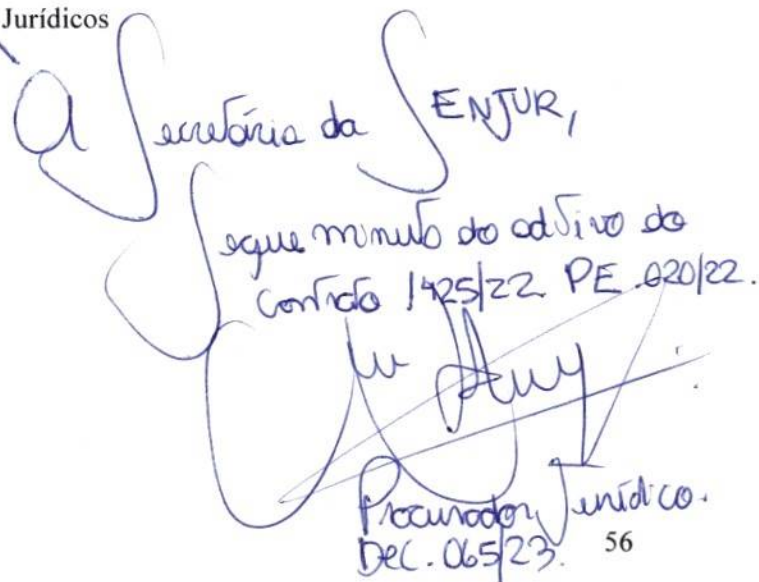 Jurídicos
A Secretária da SENJUR,
Segue minuta do aditivo do
contrato 1425/22 PE.020/22.
Procurador Jurídico.
Dec. 065/23.
56